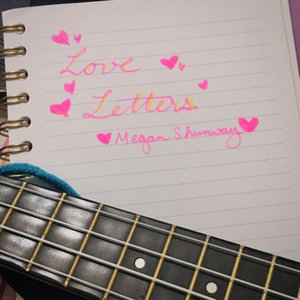 Love
Letters
Megan Shumway